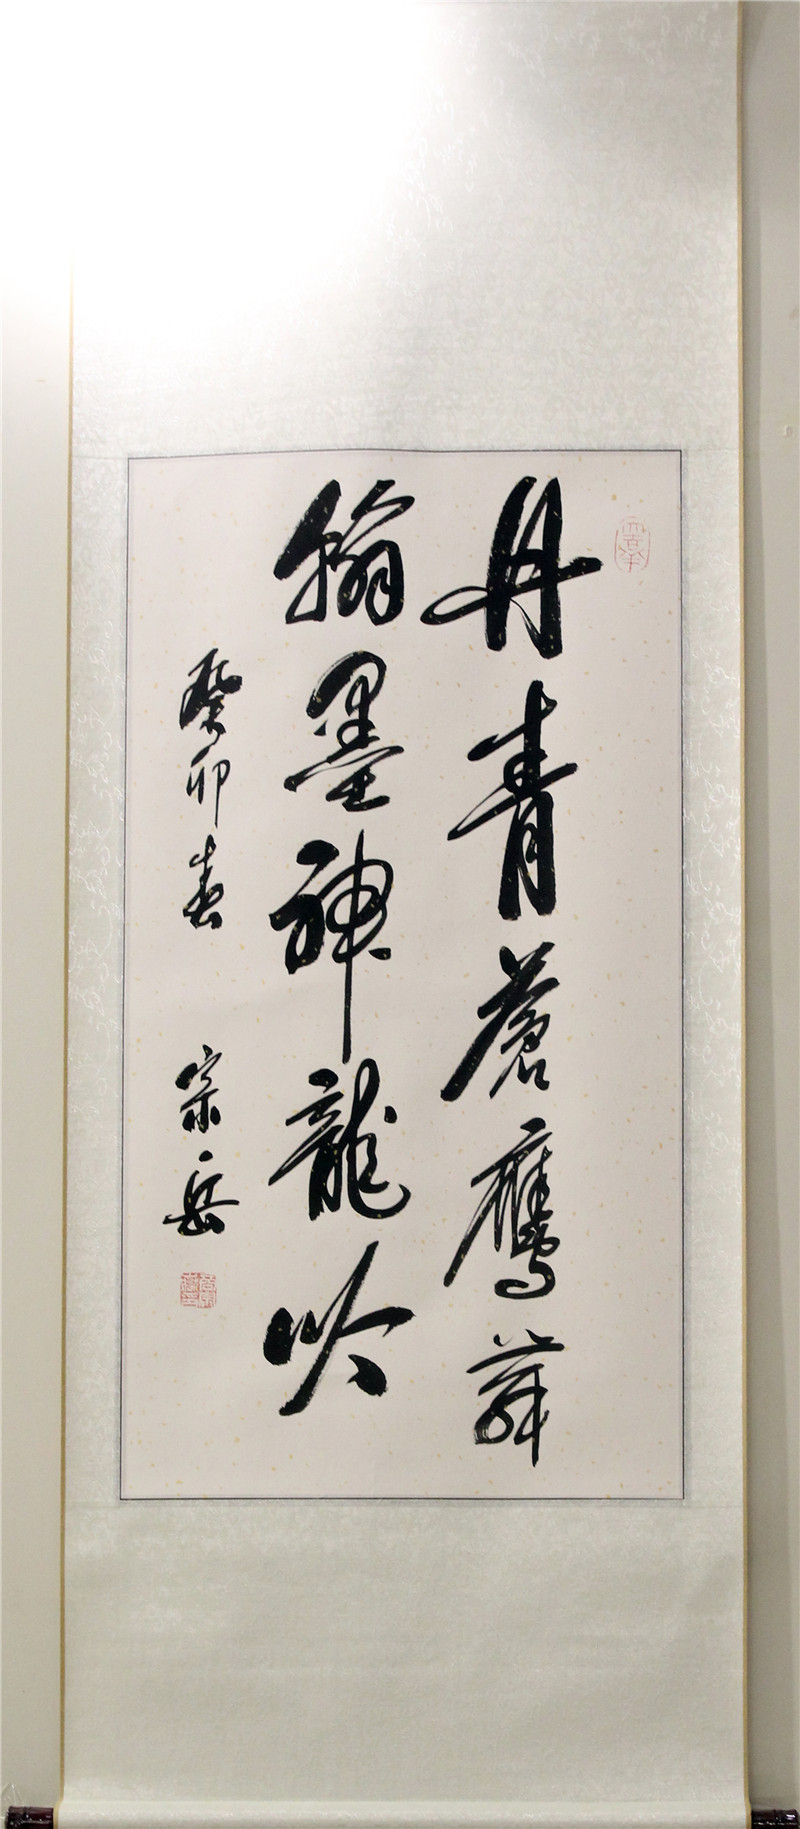 丹青蒼鷹舞
翰墨神龍吟
癸卯春 宗岳